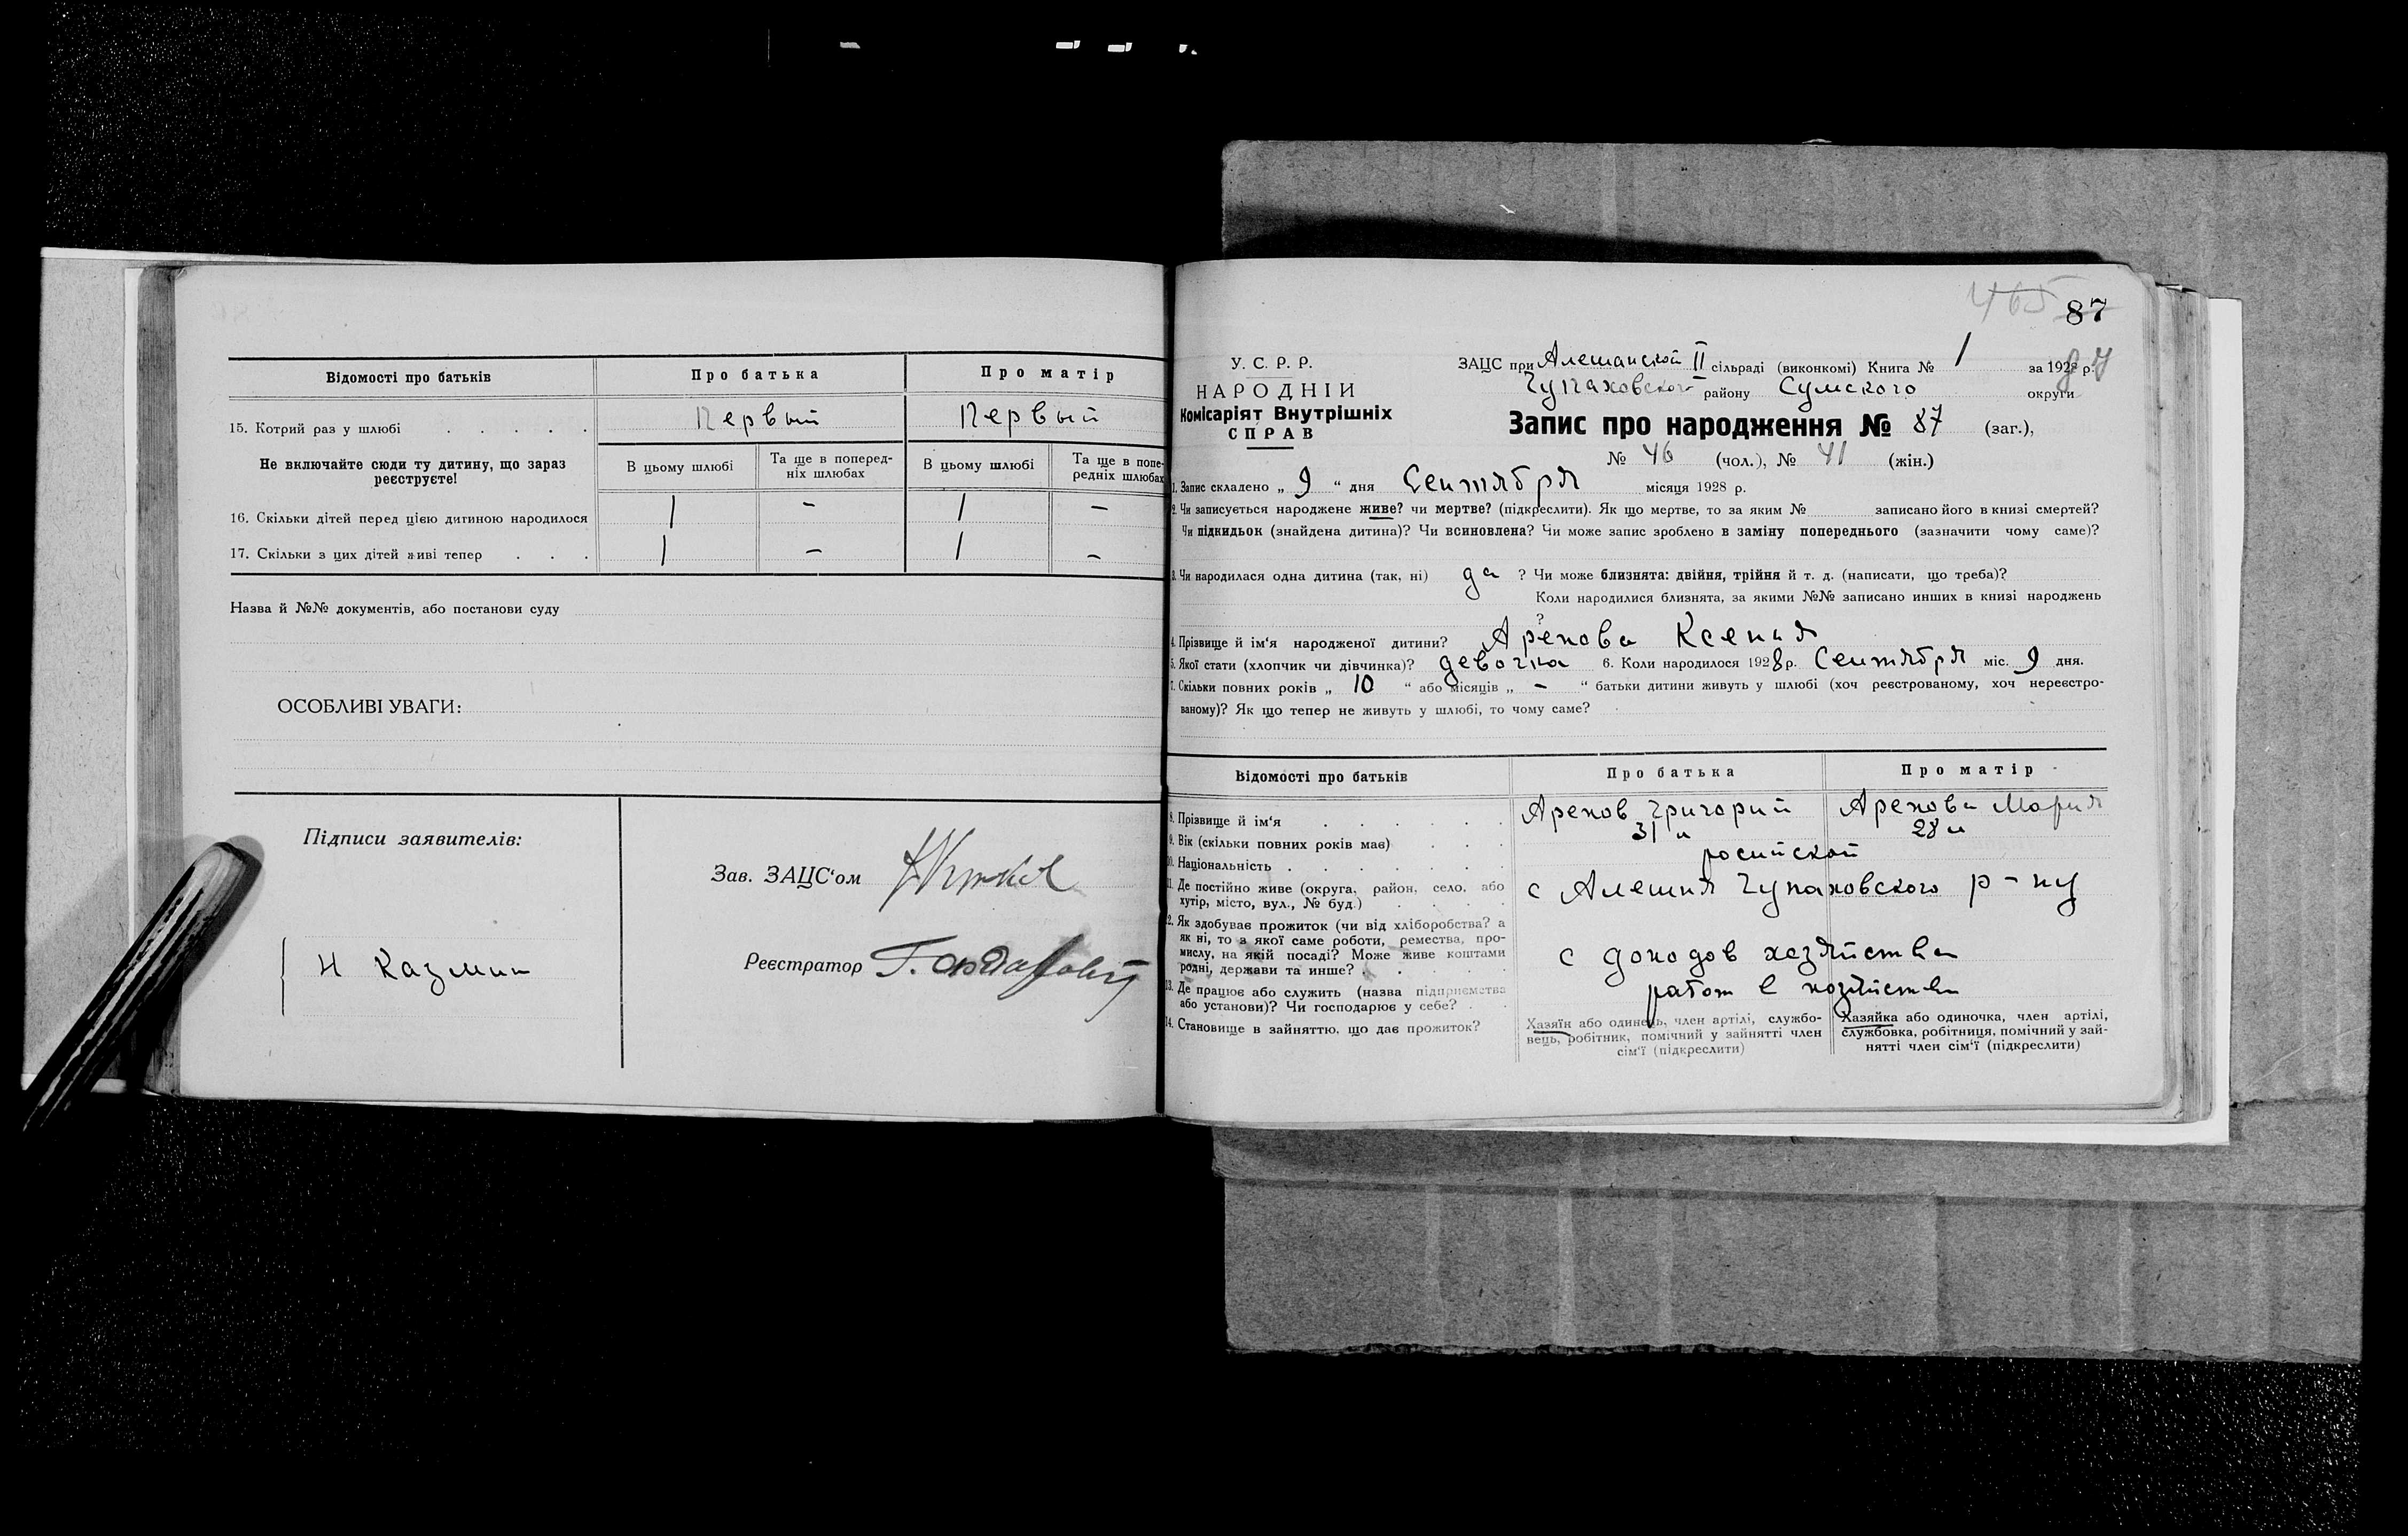 Відомості про батьків Про батька Про матір
15. Котрий раз у шлюбі . . . . . Первый Первый
Не включайте сюди ту дитину, що зараз реєструєте!
В цьому шлюбі Та ще в поперед-ніх шлюбах В цьому шлюбі Та ще в попе-редніх шлюбах
16. Скільки дітей перед цією дитиною народилося 1 – 1 –
17. Скільки з цих дітей живі тепер . . . 1 – 1 –
Назва й №№ документів, або постанови суду
ОСОБЛИВІ УВАГИ:
Підписи заявителів:
Н Казмин
Зав. ЗАЦС'ом
Реєстратор
465 87
У. С. Р. Р.
НАРОДНІЙ
Комісаріят Внутрішніх
СПРАВ
ЗАЦС при Алешанской II сільраді (виконкомі) Книга № 1 за 1928 р.
Чупаховского району Сумского округи
Запис про народження № 87 (заг.),
№ 46 (чол.), № 41 (жін.)
1. Запис складено „ 9 “ дня Сентября місяця 1928 р.
2. Чи записується народжене живе? чи мертве? (підкреслити). Як що мертве, то за яким № записано його в книзі смертей?
Чи підкидьок (знайдена дитина)? Чи всиновлена? Чи може запис зроблено в заміну попереднього (зазначити чому саме)?
3. Чи народилася одна дитина (так, ні) да ? Чи може близнята: двійня, трійня й т. д. (написати, що треба)?
Коли народилися близнята, за якими №№ записано инших в книзі народжень
?
4. Прізвище й ім'я народженої дитини? Арепова Ксения
5. Якої стати (хлопчик чи дівчинка)? девочка 6. Коли народилося 1928 р. Сентября міс. 9 дня.
7. Скільки повних років „ 10 “ або місяців „ – “ батьки дитини живуть у шлюбі (хоч реєстрованому, хоч нереєстро-
ваному)? Як що тепер не живуть у шлюбі, то чому саме?
Відомості про батьків Про батька Про матір
8. Прізвище й ім'я . . . . . . Арепов Григорий Арепова Мария
9. Вік (скільки повних років має) . . . 31 28
10. Національність . . . . . . росийской
11. Де постійно живе (округа, район, село, або
хутір, місто, вул., № буд.) . . . . с Алешня Чупаховского р-ну
12. Як здобуває прожиток (чи від хліборобства? а
як ні, то з якої саме роботи, ремества, про-
мислу, на якій посаді? Може живе коштами
родні, держави та инше? . . . . . с доходов хозяйства
13. Де працює або служить (назва підприємства
або установи)? Чи господарює у себе? . . работ в хозяйстве
14. Становище в зайняттю, що дає прожиток?
Хазяїн або одинець, член артілі, службо-
вець, робітник, помічний у зайнятті член
сім'ї (підкреслити)
Хазяйка або одиночка, член артілі,
службовка, робітниця, помічний у зай-
нятті член сім'ї (підкреслити)